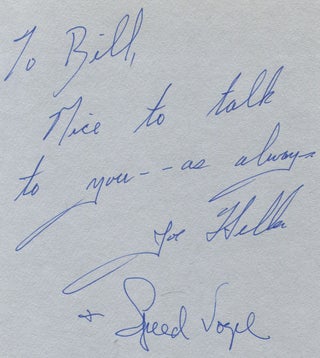 To Bill,
Nice to talk
to you -- as always
Joe Heller
+ Speed Vogel